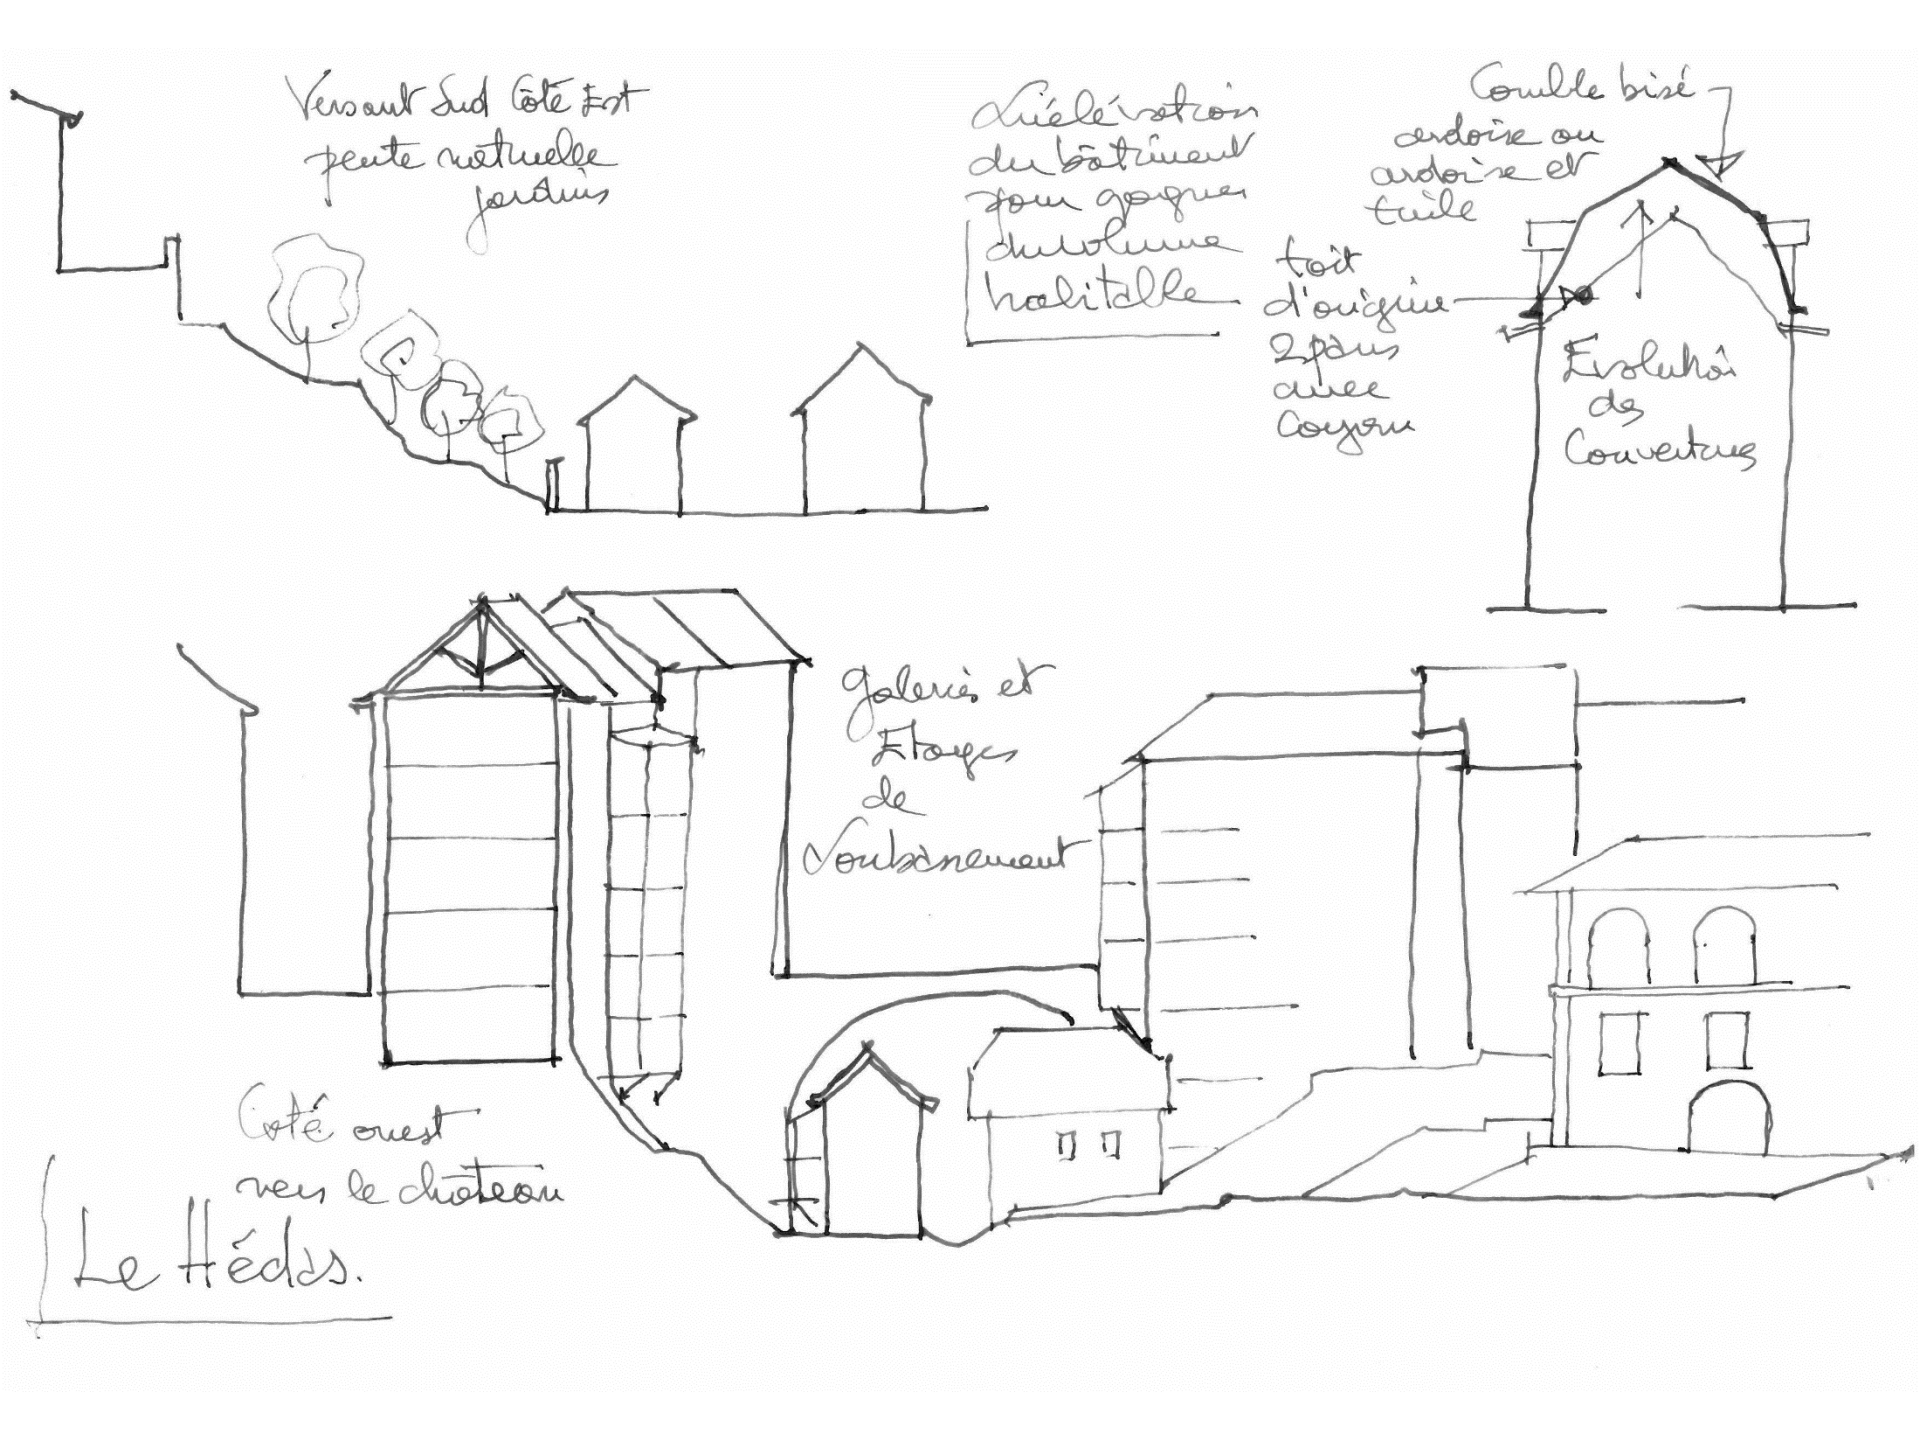 Versant Sud Côté Est
pente naturelle
jardins
Surélévation
du bâtiment
pour gagner
du volume
habitable
Comble bisé
ardoise ou
ardoise et
tuile
toit
d'origine
2 pans
avec
coyau
Evolution
des
Couvertures
Galeries et
Etages
de
Soubassement
Coté ouest
vers le château
Le Hédas.